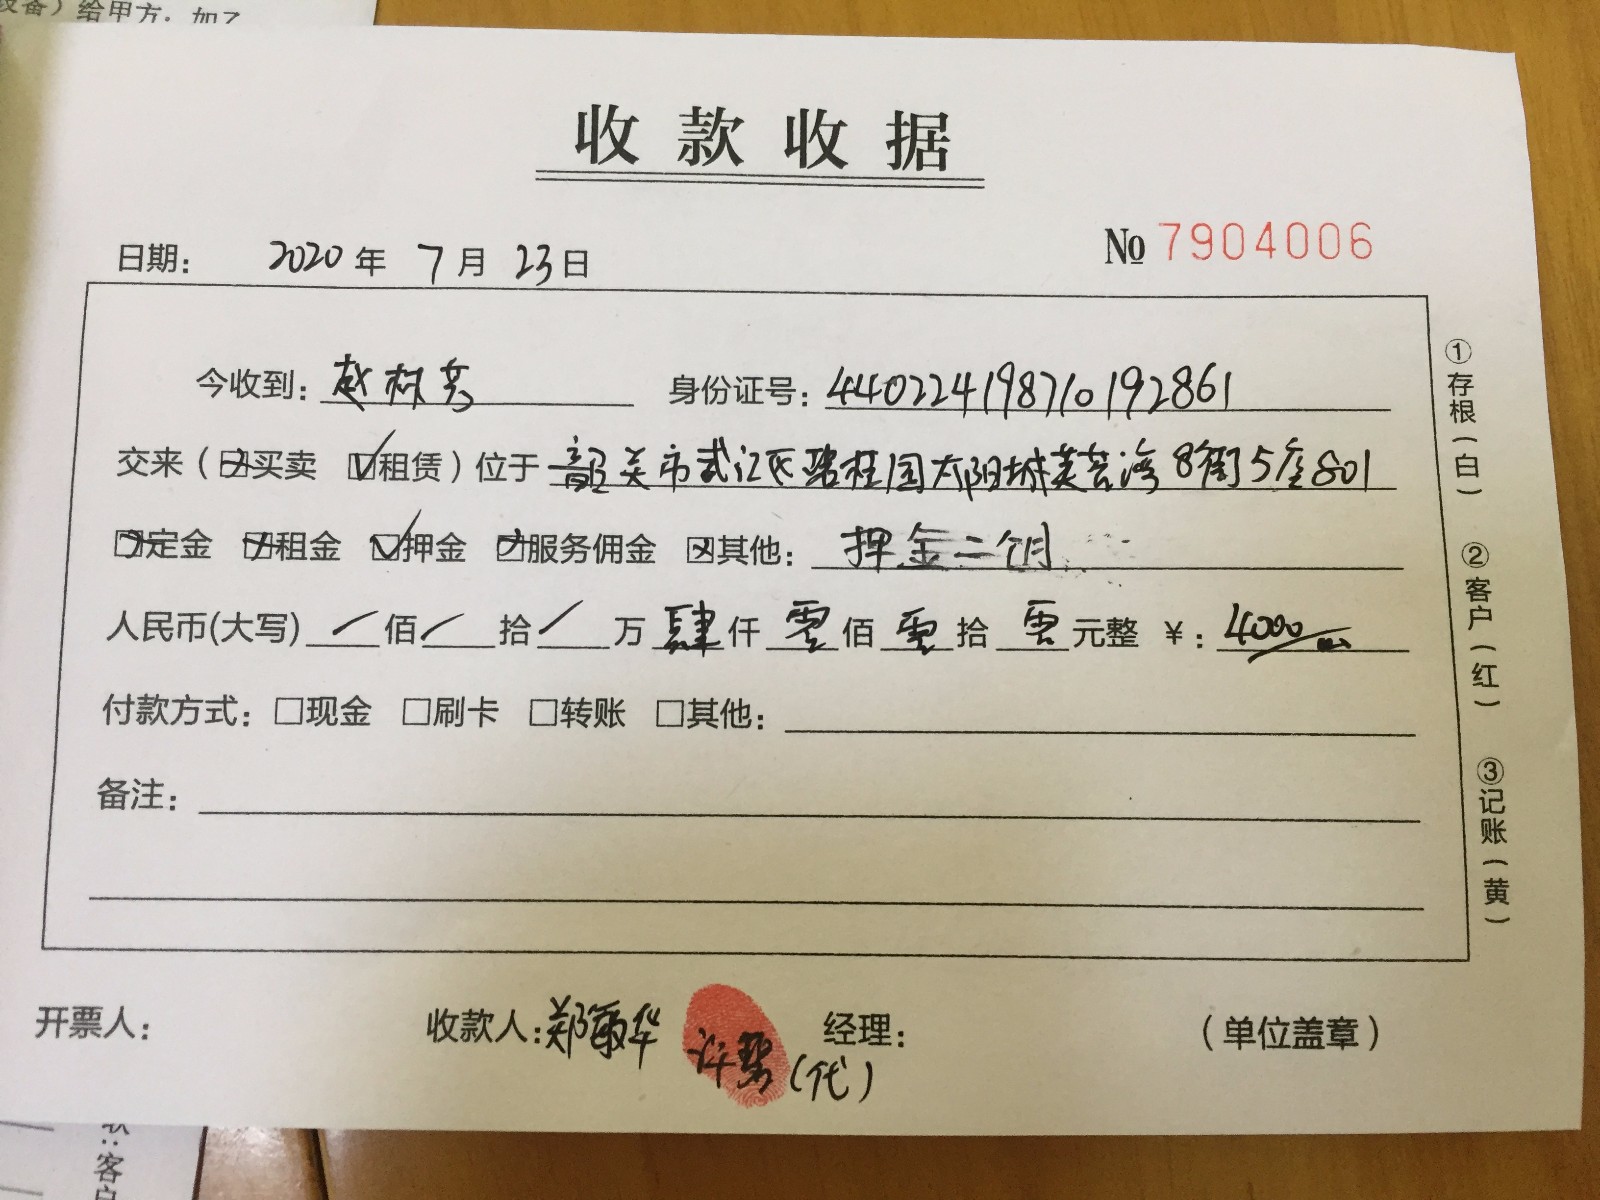 设备）给甲方。如乙
收款收据
No 7904006
日期： 2020 年 7 月 23 日
今收到： 赵 身份证号： 440224198710192861
交来（☑买卖 ☑租赁）位于 韶关市武江区碧桂园太阳城芙蓉湾8街5座801
☑定金 ☑租金 ☑押金 ☑服务佣金 ☒其他： 押金二个月
人民币(大写) / 佰 / 拾 / 万 肆 仟 零 佰 零 拾 零 元整 ¥： 4000
付款方式： □现金 □刷卡 □转账 □其他：
备注：
开票人： 收款人：郑敏华 经理： （单位盖章）
许 （代）
①存根（白） ②客户（红） ③记账（黄）
客户